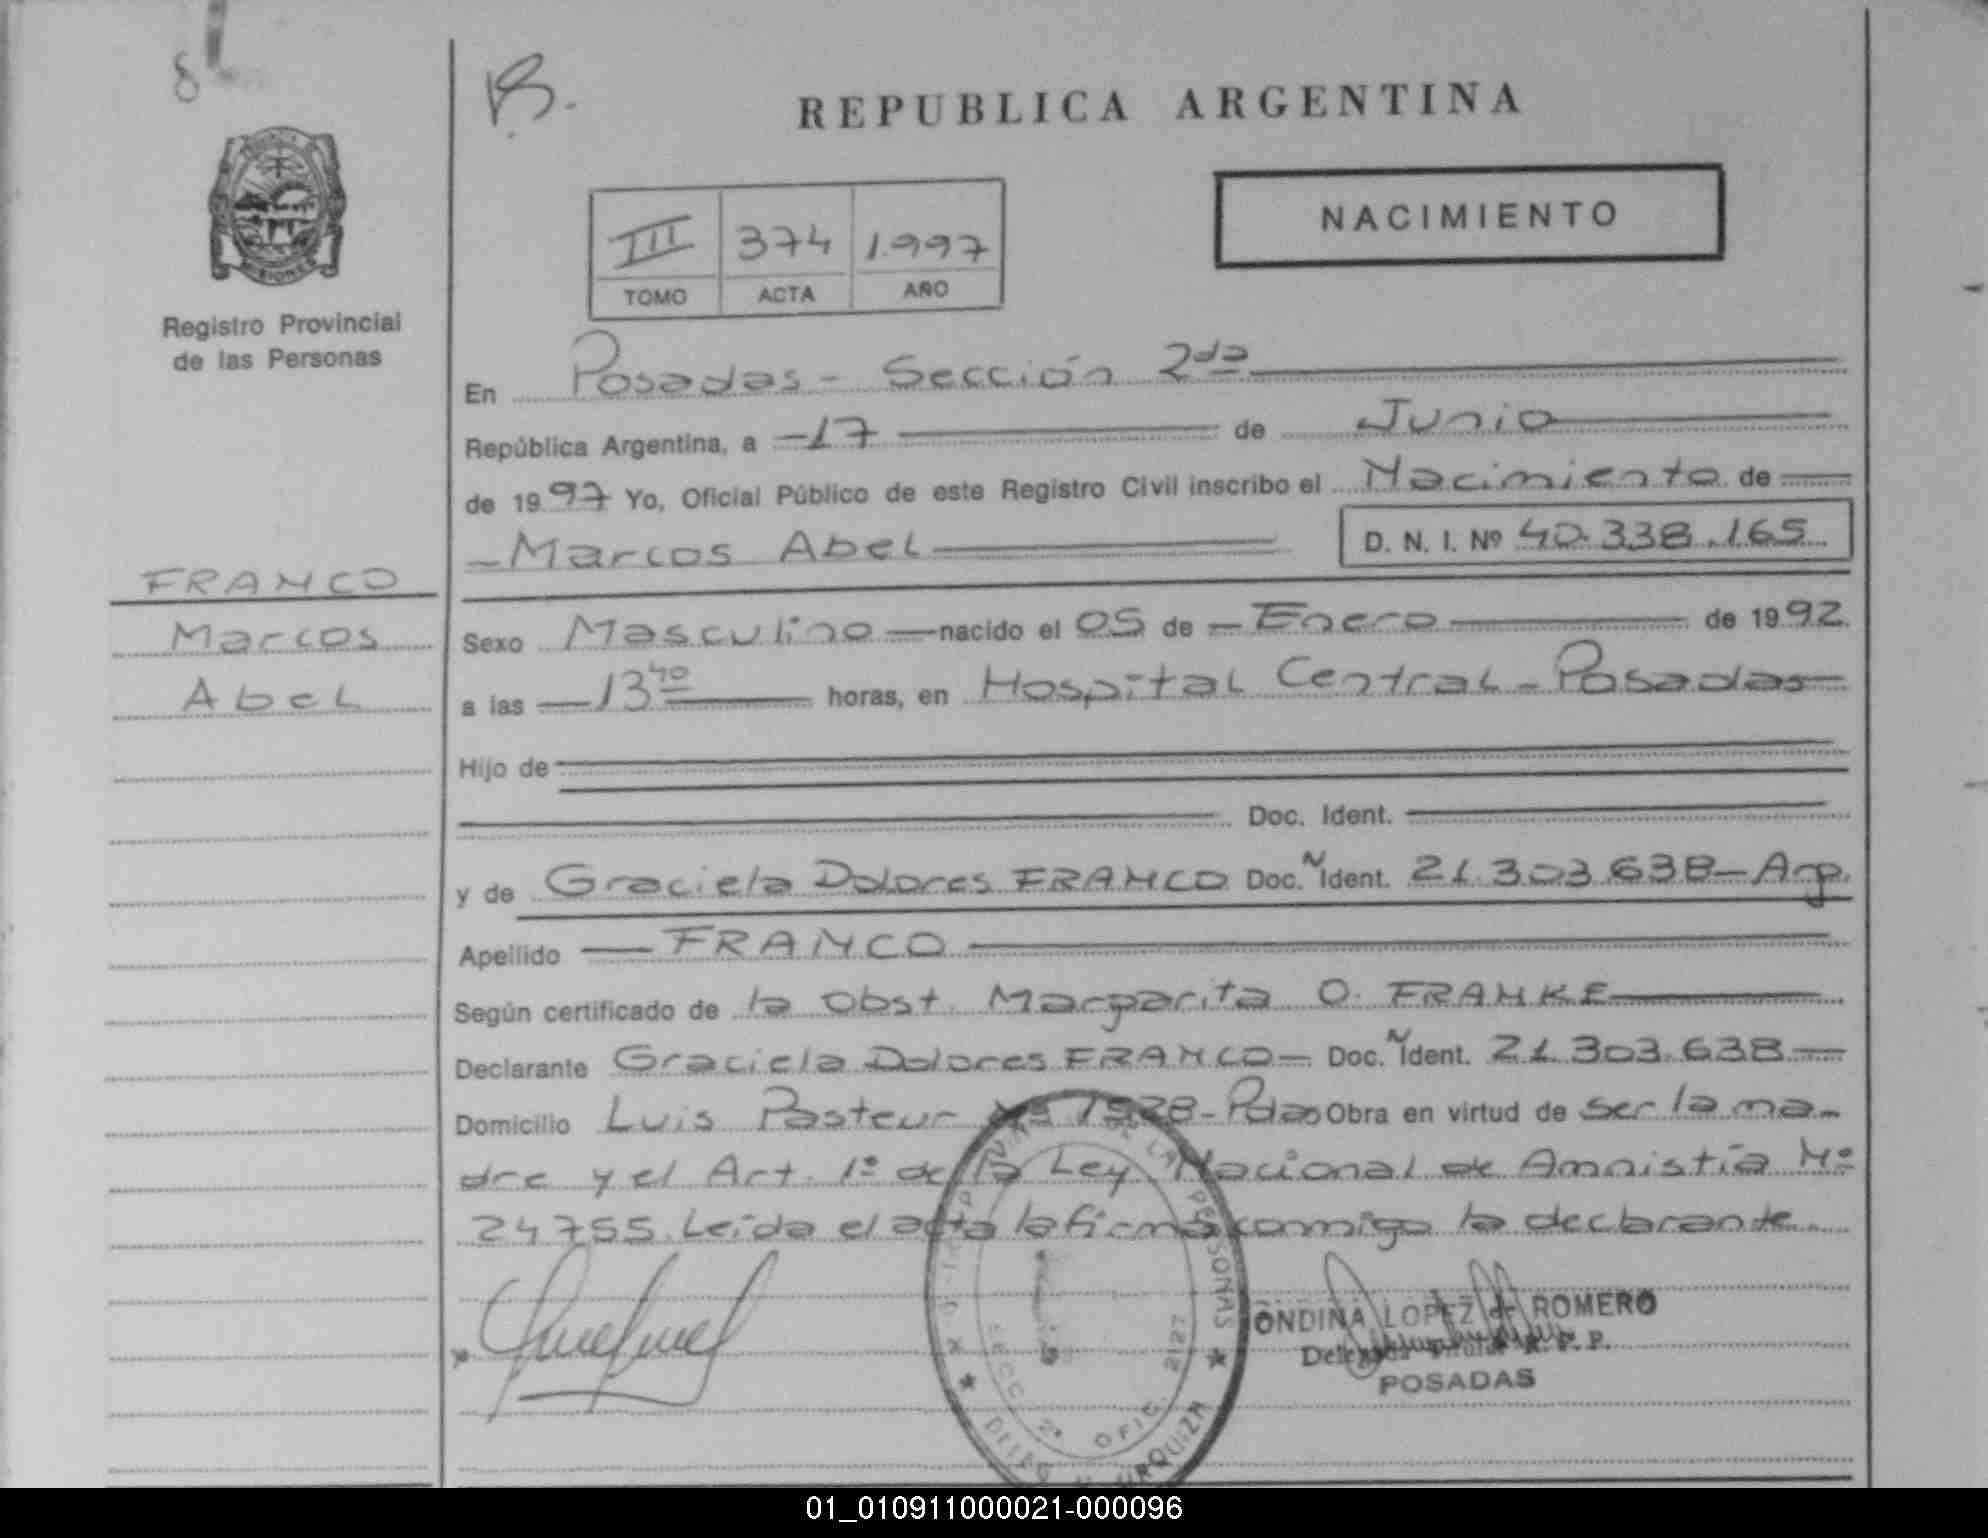 8
B.
REPUBLICA ARGENTINA
NACIMIENTO
III 374 1.997
TOMO ACTA AÑO
Registro Provincial
de las Personas
En Posadas - Sección 2da
República Argentina, a -17 de Junio
de 1997 Yo, Oficial Público de este Registro Civil inscribo el Nacimiento de
- Marcos Abel D. N. I. Nº 40.338.165
FRANCO
Marcos
Abel
Sexo Masculino nacido el 05 de - Enero de 1992
a las 13 40 horas, en Hospital Central - Posadas
Hijo de
Doc. Ident.
y de Graciela Dolores FRANCO Doc. N Ident. 21.303.638 - Arg.
Apellido FRANCO
Según certificado de la Obst. Margarita O. FRANKE
Declarante Graciela Dolores FRANCO - Doc. N Ident. 21.303.638
Domicilio Luis Pasteur 1928 - Pdas Obra en virtud de ser la ma-
dre y el Art. 1º de la Ley Nacional de Amnistía Nº
24755. Leída el acta la firma conmigo la declarante
DE LAS PERSONAS
SECC. 2ª OFIC. 2127
DELEG. V. URQUIZA
ONDINA LOPEZ de ROMERO
Delegada Titular R. P. P.
POSADAS
01_010911000021-000096